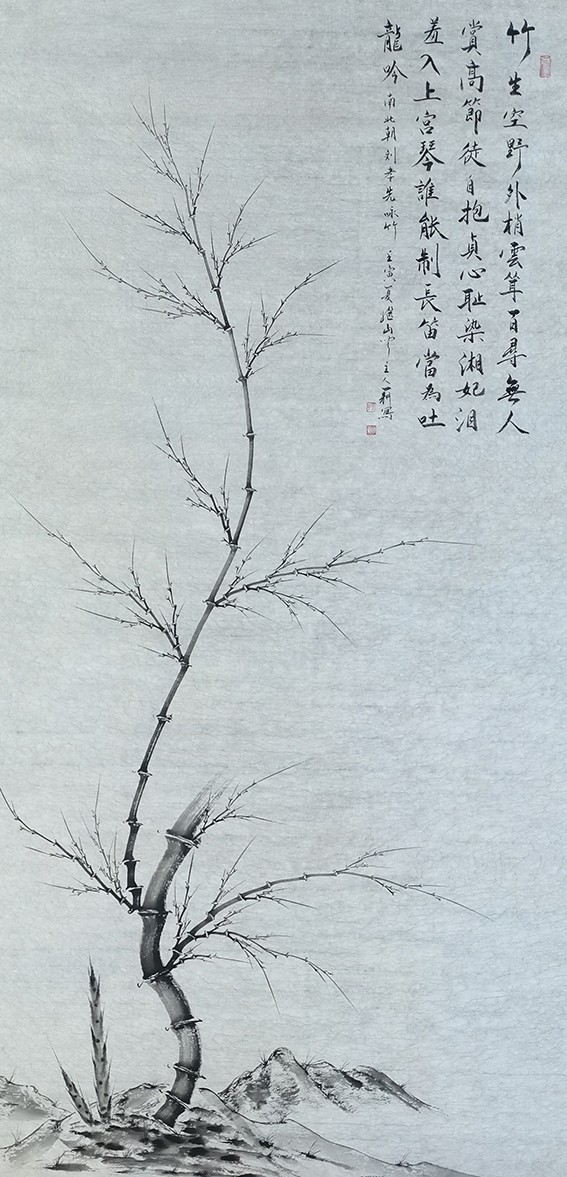 竹生空野外梢雲聳百尋無人
賞高節徒自抱貞心耻染湘妃泪
羞入上宮琴誰能制長笛當為吐
龍吟 南北朝刘孝先咏竹 壬寅夏